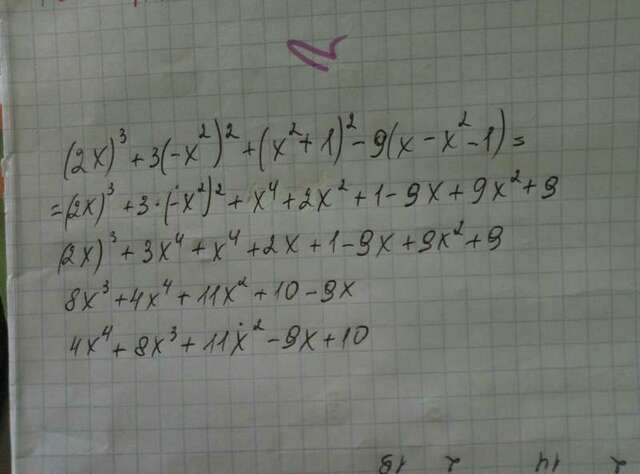 (2x)³ + 3(-x²)² + (x² + 1)² - 9(x - x² - 1) =
= (2x)³ + 3·(-x²)² + x⁴ + 2x² + 1 - 9x + 9x² + 9
(2x)³ + 3x⁴ + x⁴ + 2x + 1 - 9x + 9x² + 9
8x³ + 4x⁴ + 11x² + 10 - 9x
4x⁴ + 8x³ + 11x² - 9x + 10